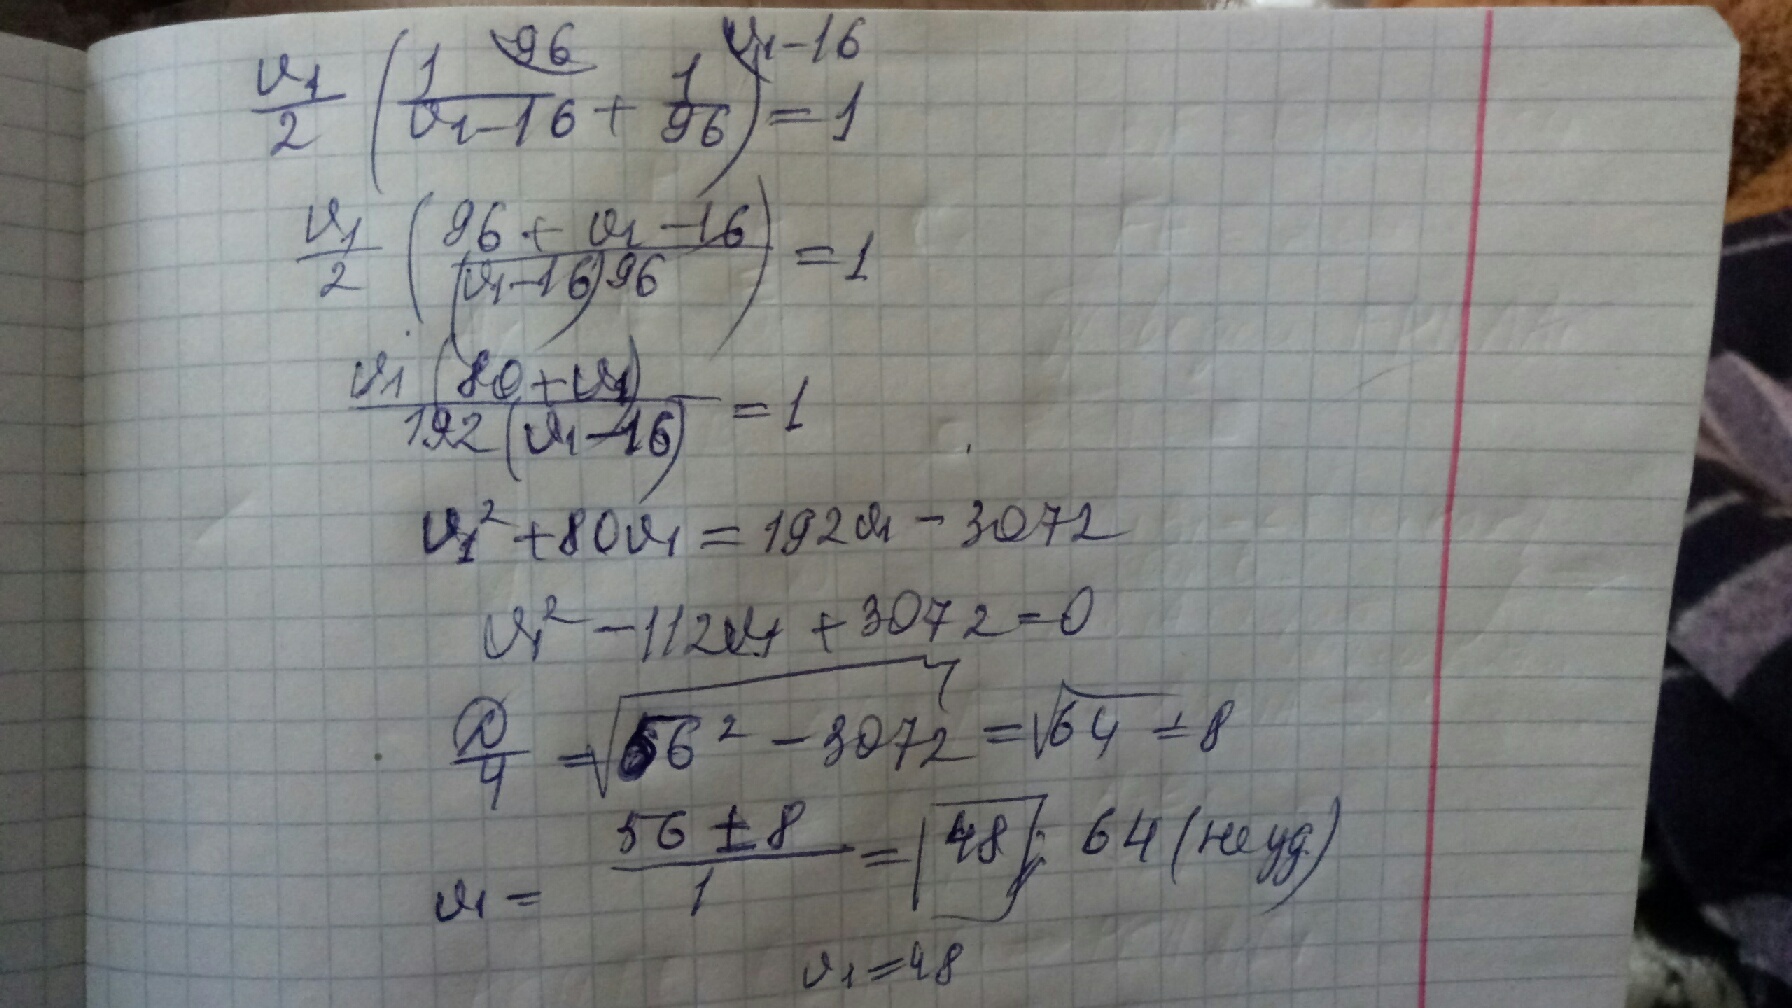 v₁/2 (1/(v₁-16) + 1/96) = 1 96 v₁-16
v₁/2 ((96 + v₁ - 16)/((v₁-16)96)) = 1
v₁(80+v₁)/(192(v₁-16)) = 1
v₁² + 80v₁ = 192v₁ - 3072
v₁² - 112v₁ + 3072 = 0
D/4 = √(56² - 3072) = √64 = 8
v₁ = (56 ± 8)/1 = 48; 64 (не уд)
v₁ = 48